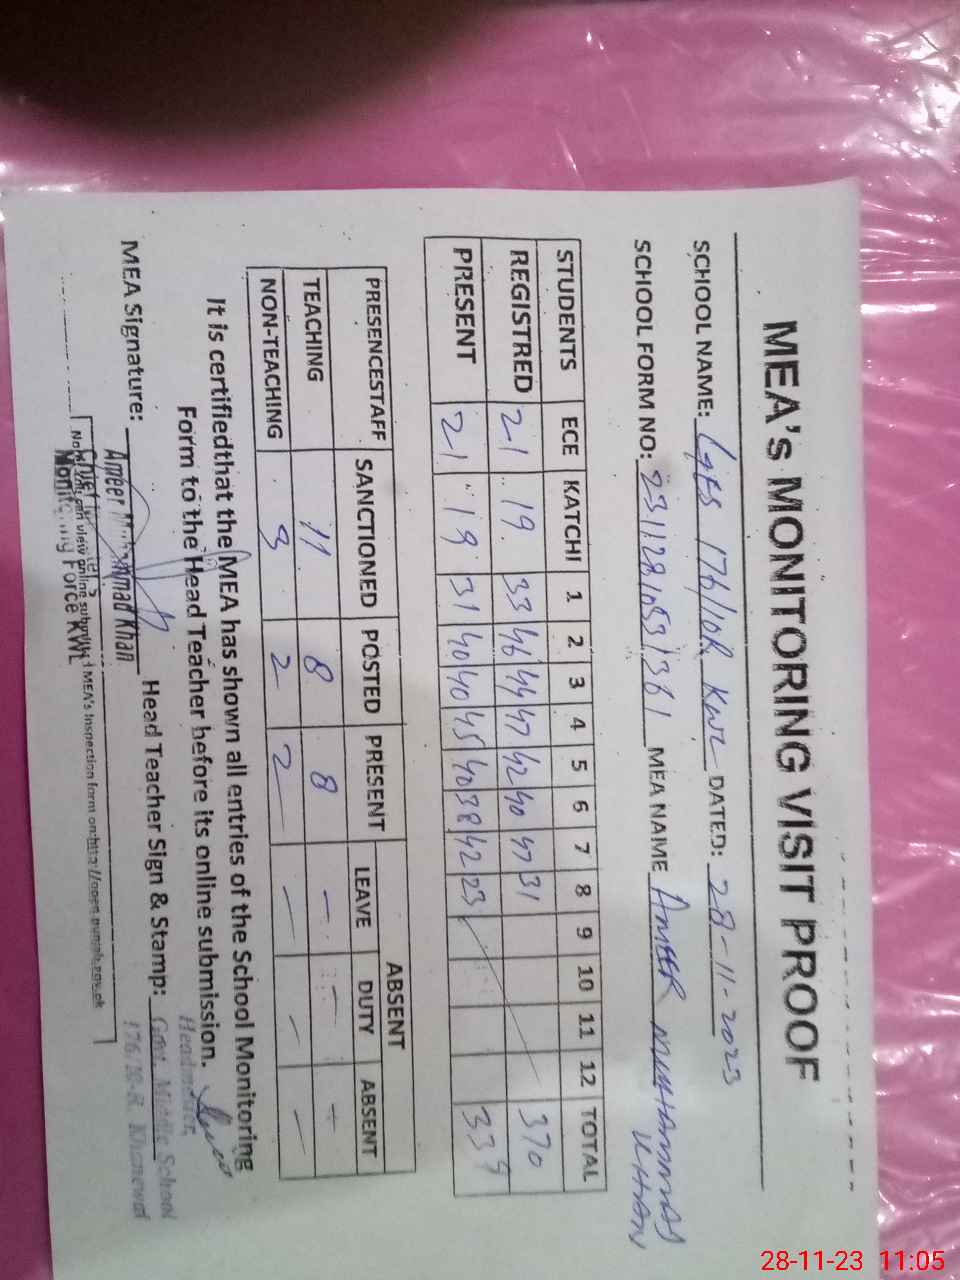 MEA's MONITORING VISIT PROOF
SCHOOL NAME: GES 176/10R KWL DATED: 28-11-2023
SCHOOL FORM NO: 2311281053136 1 MEA NAME AMEER MUHAMMAD KHAN
STUDENTS ECE KATCHI 1 2 3 4 5 6 7 8 9 10 11 12 TOTAL
REGISTRED 21 19 33 46 44 47 42 40 47 31 370
PRESENT 21 19 31 40 40 45 40 38 42 23 339
PRESENCESTAFF SANCTIONED POSTED PRESENT ABSENT
LEAVE DUTY ABSENT
TEACHING 11 8 8 - - -
NON-TEACHING 3 2 2 - - -
It is certifiedthat the MEA has shown all entries of the School Monitoring
Form to the Head Teacher before its online submission.
MEA Signature: Ameer Muhammad Khan Head Teacher Sign & Stamp:
Headmaster,
Govt. Middle School
176/10-R. Khanewal
Monitoring Force KWL
can view online submitted MEA's Inspection form on:http://open.punjab.gov.pk
28-11-23 11:05